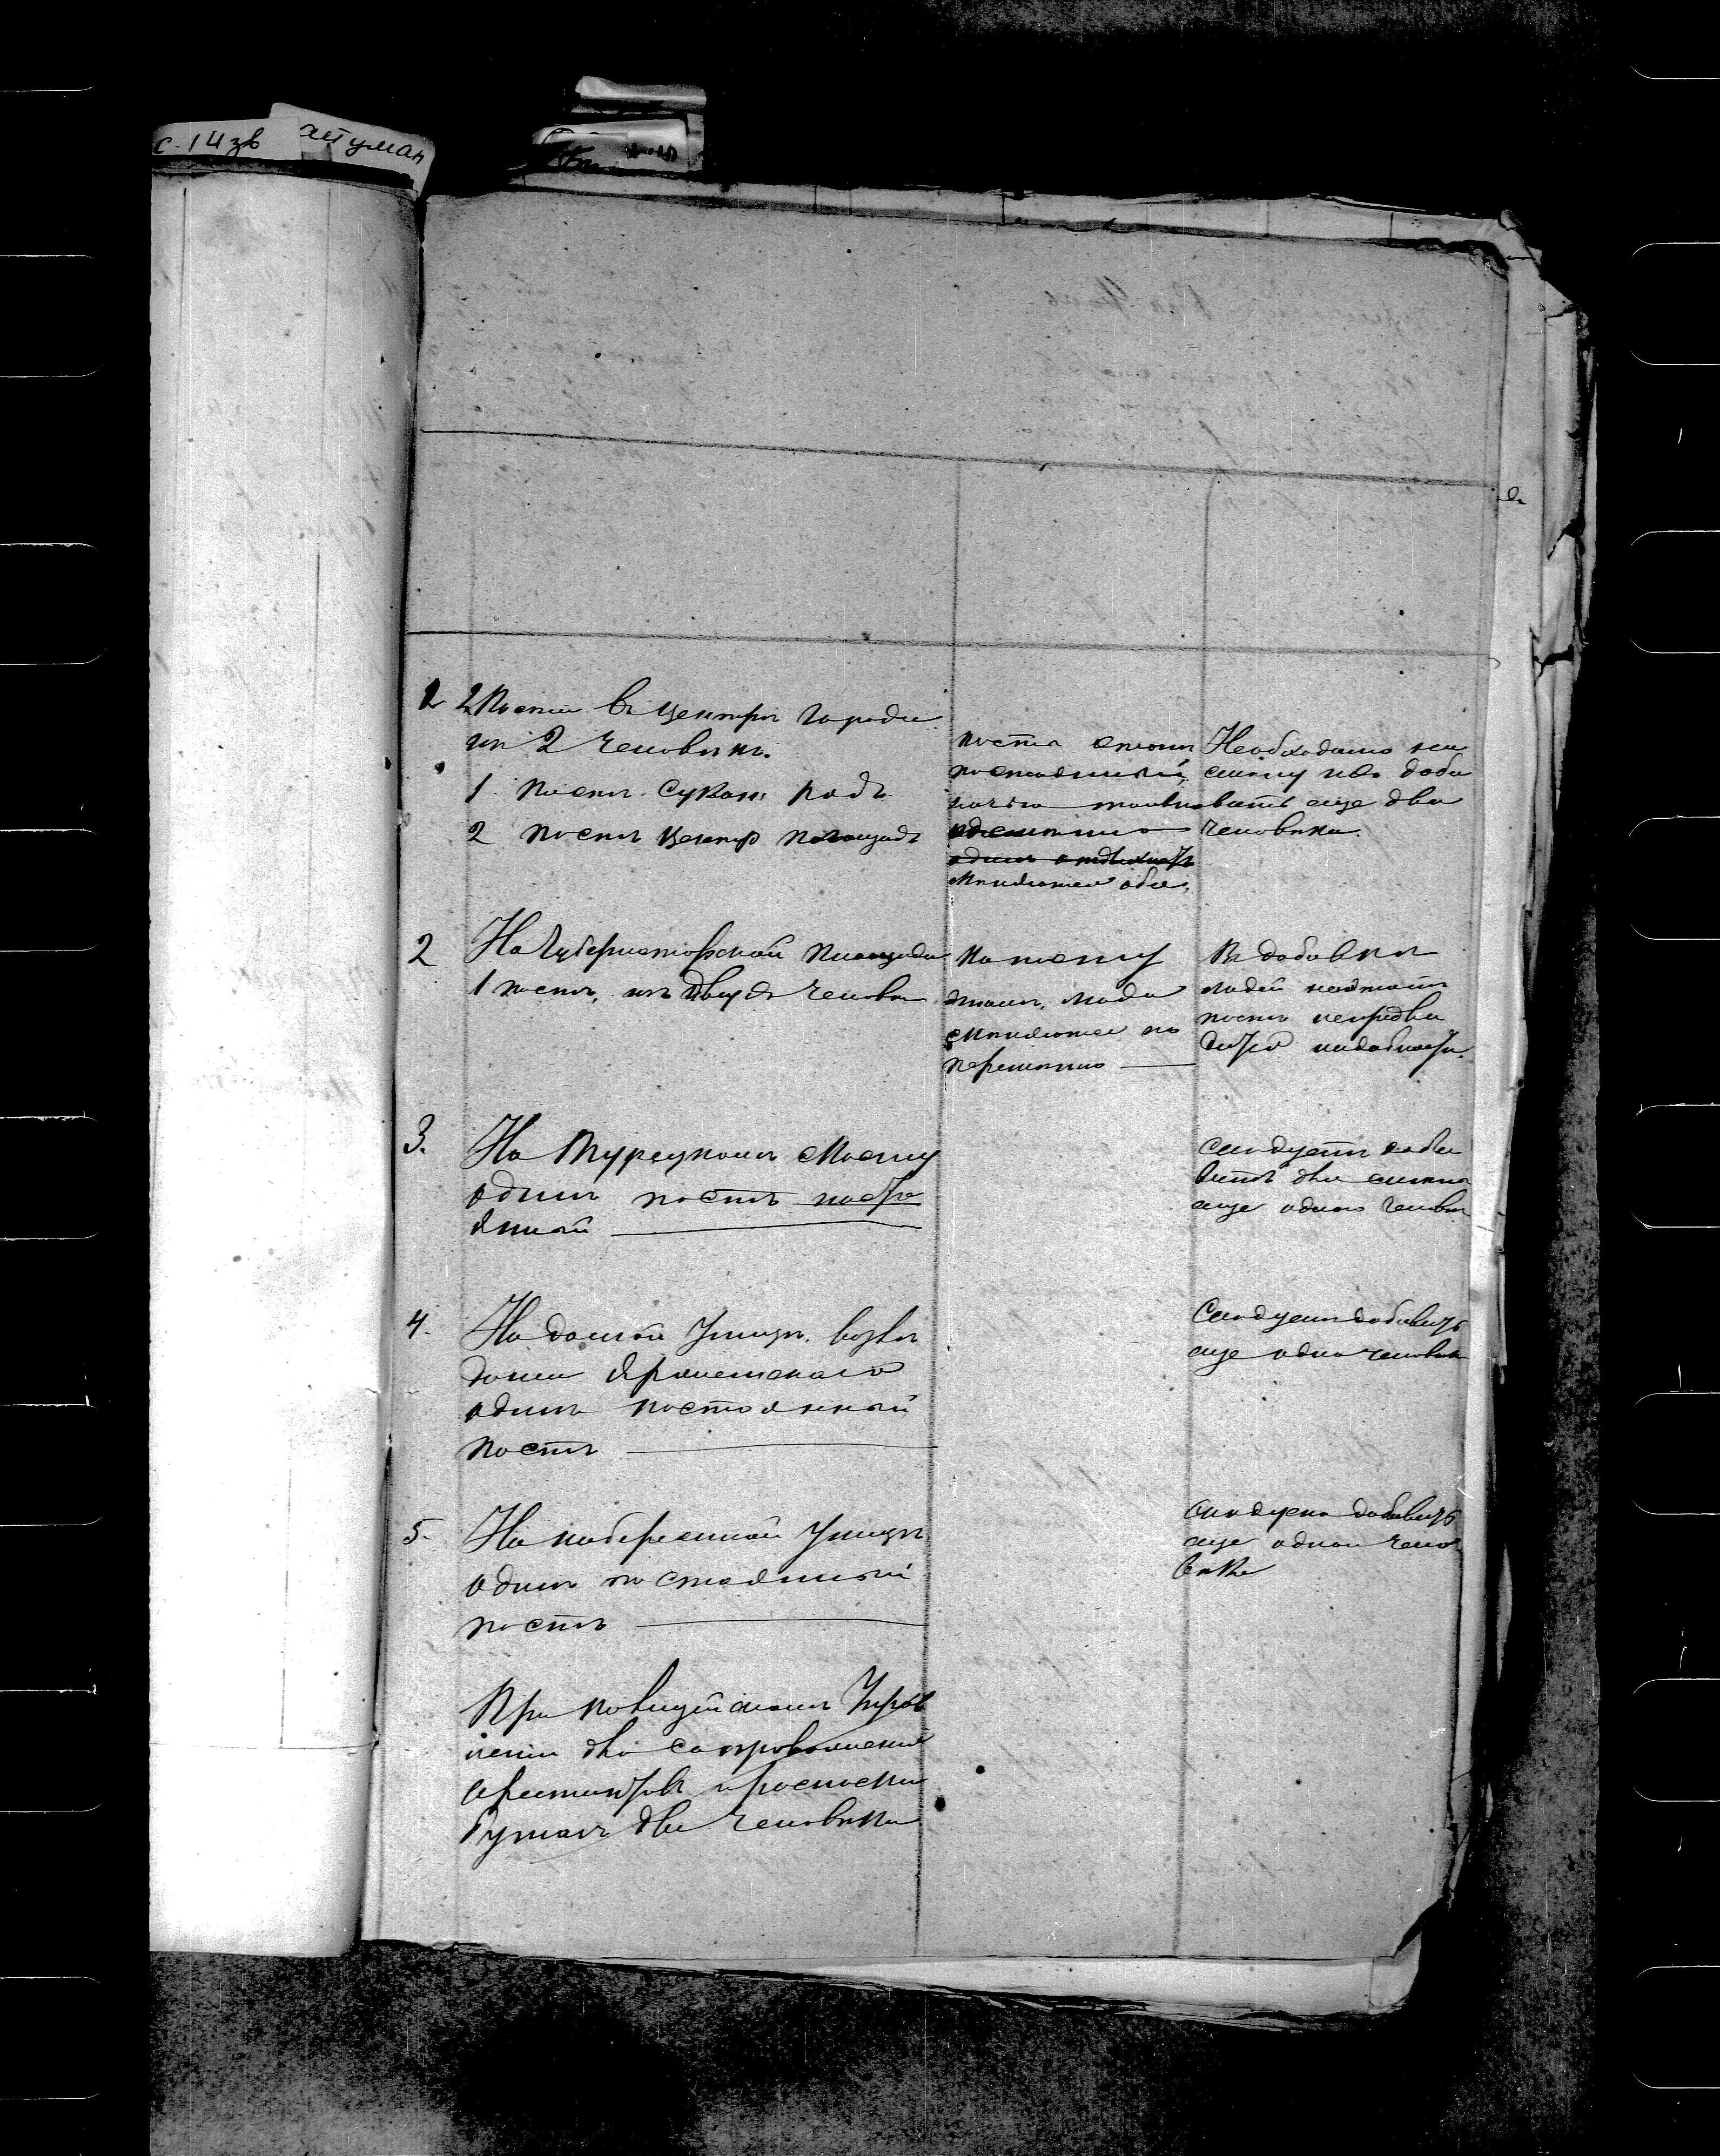 с. 14 зв
атуман
1 2 Поста въ центрѣ города
изъ 2 человѣкъ.
1. постъ Сукон. рядъ
2 постъ центр площадь
постъ
постоянный,
ночью
смѣняются оба,
Необходимо на
смѣну ихъ доба
вить еще два
человѣка.
2 На Губернаторской площади
1 постъ, изъ двухъ человѣк
По тому
люди
смѣняются по
перемѣнно
Въ добавкѣ
людей на этотъ
постъ непредви
дится надобности.
3. На Турецкомъ мосту
одинъ постъ посто
янный
Слѣдуетъ доба
вить для смѣны
еще одного человѣк
4. На домской Улицѣ возлѣ
дома
одинъ постоянный
постъ
Слѣдуетъ добавить
еще одно человѣка
5. На набережной Улицѣ
одинъ постоянный
постъ
Слѣдуетъ добавить
еще одного чело
вѣка
При полицейскомъ Управ
леніи для сопровожденія
арестантовъ и разноски
бумагъ два человѣка